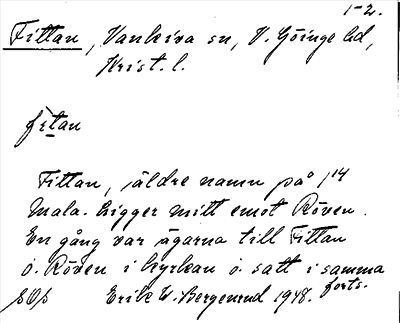 1-2.
Fittan, Vankiva sn, V. Göinge hd,
Krist. l.
fìtan
Fittan, äldre namn på 1/14
Mala. Ligger mitt emot Röven.
En gång var ägarna till Fittan
o. Röven i kyrkan o. satt i samma
forts.
SOS Erik W. Bergenrud 1948.